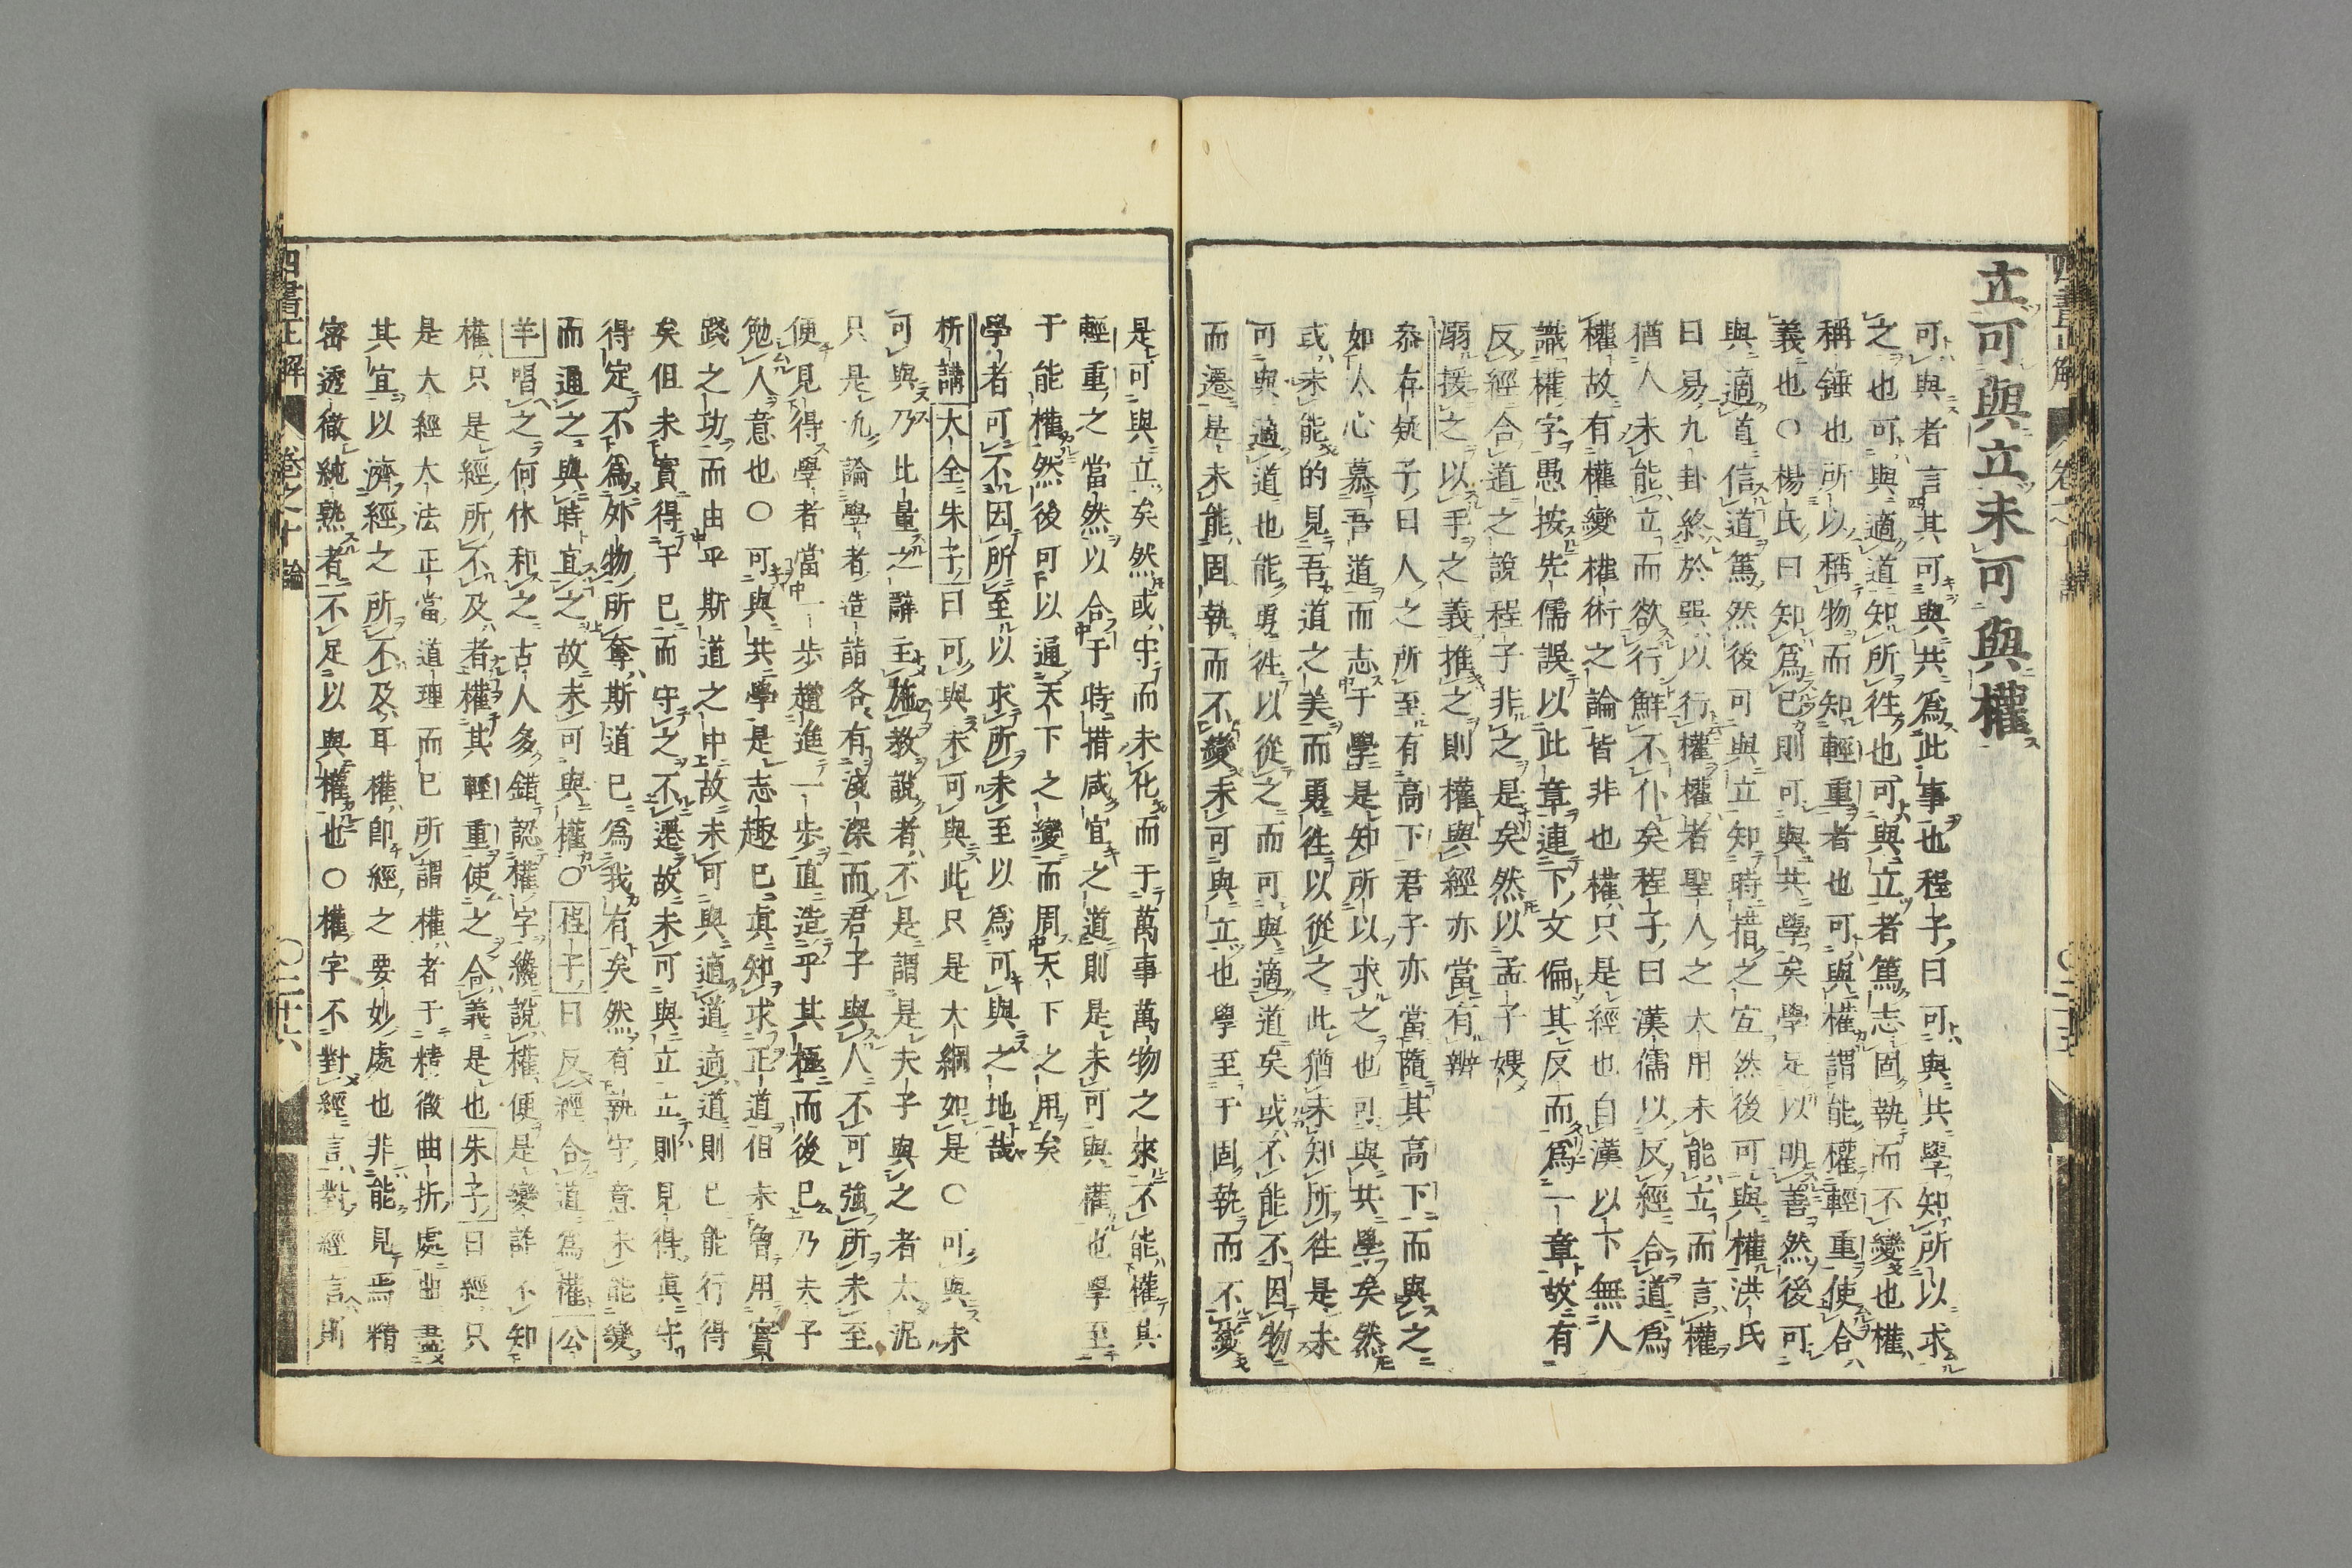 立可與立未可與權
可與者言其可與共爲此事也程子曰可與共學知所以求
之也可與適道知所徃也可與立者篤志固執而不變也權
稱錘也所以稱物而知輕重者也可與權謂能權輕重使合
義也○楊氏曰知爲已則可與共學矣學足以明善然後可
與適道信道篤然後可與立知時措之宜然後可與權洪氏
曰易九卦終於巽以行權權者聖人之大用未能立而言權
猶人未能立而欲行鮮不仆矣程子曰漢儒以反經合道爲
權故有權變權術之論皆非也權只是經也自漢以下無人
識權字愚按先儒誤以此章連下文偏其反而爲一章故有
反經合道之說程子非之是矣然以孟子嫂
溺援之以手之義推之則權與經亦當有辨
叅存疑子曰人之所至有高下君子亦當隨其高下而與之
如人心慕吾道而志于學是知所以求之也可與共學矣然
或未能的見吾道之美而勇徃以從之此猶未知所徃是未
可與適道也能勇徃以從之而可與適道矣或不能不因物
而遷是未能固執而不變未可與立也學至于固執而不變
是可與立矣然或守而未化而于萬事萬物之來不能權其
輕重之當然以合于時措咸宜之道則是未可與權也學至
于能權然後可以通天下之變而周天下之用矣
學者可不因所至以求所未至以爲可與之地哉
析講大全朱子曰可與未可與此只是大綱如是○可與未
可與乃比量之辭主施教說者不是謂是夫子與之者太泥
只是凡論學者造詣各有淺深而君子與人不可強所未至
便見得學者當一步趲進一步直造乎其極而後已乃夫子
勉人意也○可與共學是志趣已眞知求正道但未會用實
踐之功而由乎斯道之中故未可與適道適道則已能行得
矣但未實得于已而守之不遷故未可與立立則見得眞守
得定不爲外物所奪斯道已爲我有矣然有執守意未能變
而通之與時宜之故未可與權○程子曰反經合道爲權公
羊唱之何休和之古人多錯認權字纔說權便是變詐不知
權只是經所不及者權其輕重使之合義是也朱子曰經只
是大經大法正當道理而已所謂權者于精微曲折處曲盡
其宜以濟經之所不及耳權卽經之要妙處也非能見焉精
密透徹純熟者不足以與權也○權字不對經言對經言則
四書正解 卷之十論 ○二十六